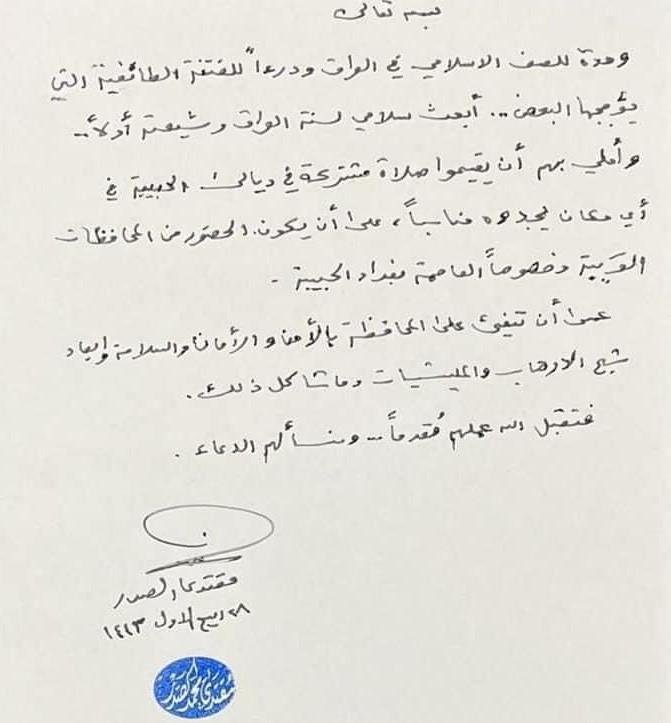 بسمه تعالى
وحدة للصف الاسلامي في العراق ودرءاً للفتنة الطائفية التي
يؤججها البعض... أبعث سلامي لسنة العراق وشيعته أولاً..
وأملي بهم أن يقيموا صلاة مشتركة في ديالى الحبيبة في
أي مكان يجدوه مناسباً، على أن يكون الحضور من المحافظات
القريبة وخصوصاً العاصمة بغداد الحبيبة.
عسى أن تفيء على المحافظة بالأمن والأمان والسلامة وإبعاد
شبح الارهاب والمليشيات وما شاكل ذلك.
فتقبل الله عملهم مُقدماً.. ونسألهم الدعاء.
مقتدى الصدر
٢٨ ربيع الاول ١٤٤٣
مقتدى محمد الصدر